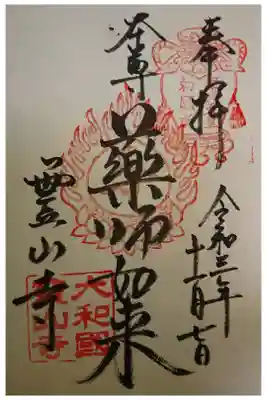 奉拝
令和三年十一月七日
本尊
薬師如来
霊山寺
大和國
霊山寺